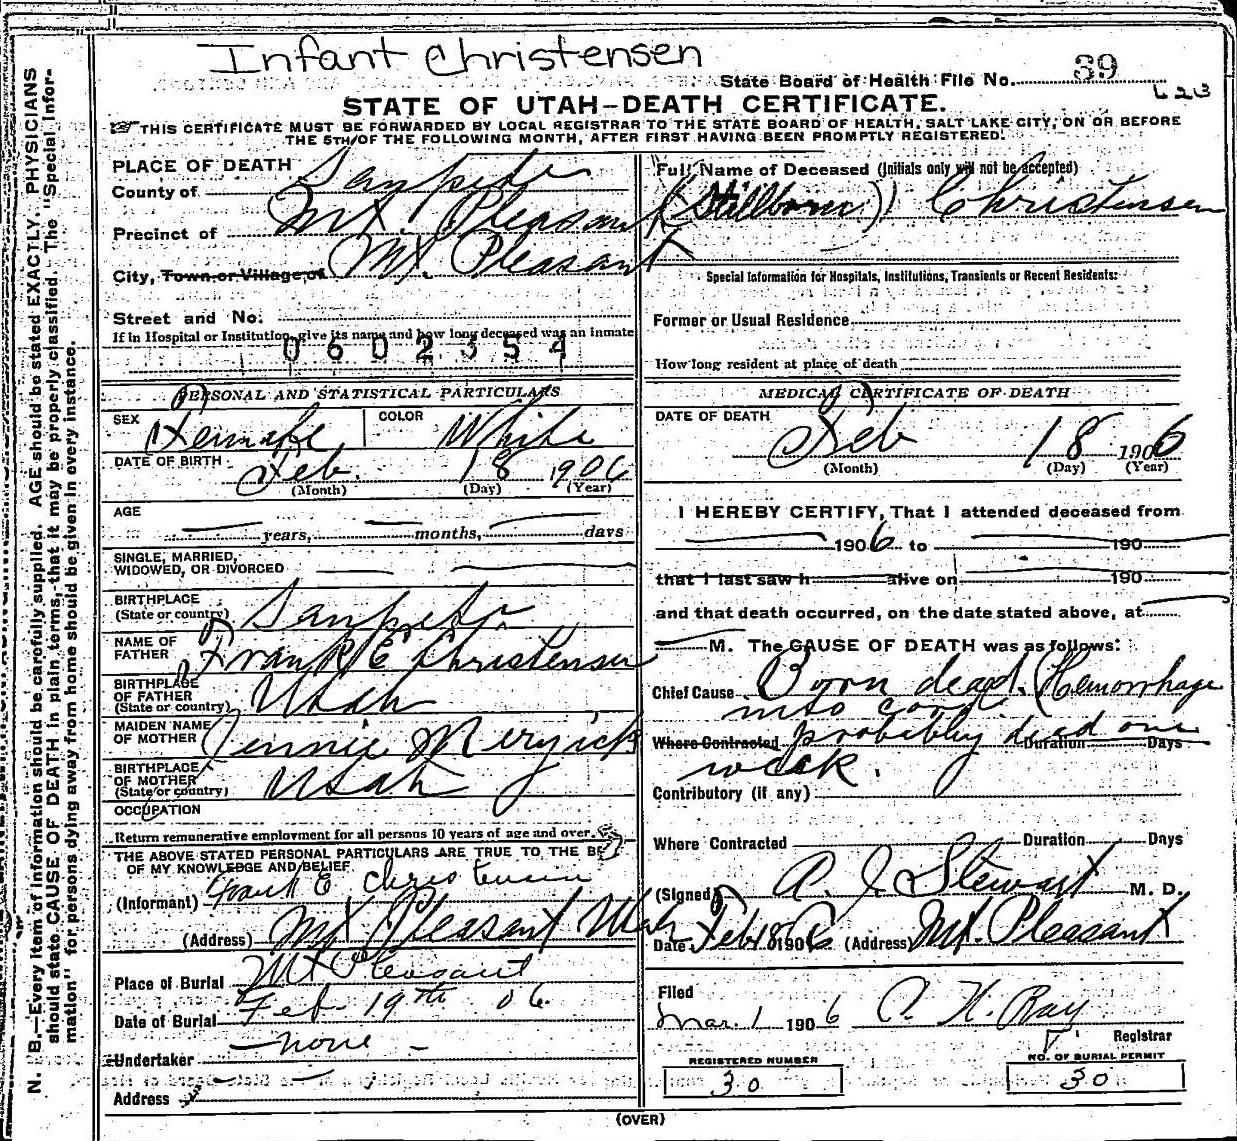 Infant Christensen
State Board of Health File No. 39
623
STATE OF UTAH-DEATH CERTIFICATE.
THIS CERTIFICATE MUST BE FORWARDED BY LOCAL REGISTRAR TO THE STATE BOARD OF HEALTH, SALT LAKE CITY, ON OR BEFORE
THE 5TH OF THE FOLLOWING MONTH, AFTER FIRST HAVING BEEN PROMPTLY REGISTERED.
PLACE OF DEATH
County of Sanpete
Precinct of Mt. Pleasant
City, Town or Village of Mt. Pleasant
Street and No.
If in Hospital or Institution, give its name and how long deceased was an inmate
0602354
PERSONAL AND STATISTICAL PARTICULARS
SEX Female COLOR White
DATE OF BIRTH Feb. 18 1906
(Month) (Day) (Year)
AGE
years, months, days
SINGLE, MARRIED,
WIDOWED, OR DIVORCED
BIRTHPLACE
(State or country) Sanpete
NAME OF
FATHER Frank E Christensen
BIRTHPLACE
OF FATHER
(State or country) Utah
MAIDEN NAME
OF MOTHER Jennie
BIRTHPLACE
OF MOTHER
(State or country) Utah
OCCUPATION
Return remunerative employment for all persons 10 years of age and over.
THE ABOVE STATED PERSONAL PARTICULARS ARE TRUE TO THE BE
OF MY KNOWLEDGE AND BELIEF
(Informant) Frank E Christensen
(Address) Mt Pleasant Utah
Place of Burial Mt Pleasant
Date of Burial Feb 19th 06.
Undertaker none
Address
Full Name of Deceased (Initials only will not be accepted)
(Stillborn) Christensen
Special Information for Hospitals, Institutions, Transients or Recent Residents:
Former or Usual Residence
How long resident at place of death
MEDICAL CERTIFICATE OF DEATH
DATE OF DEATH
Feb 18 1906
(Month) (Day) (Year)
I HEREBY CERTIFY, That I attended deceased from
1906 to 190
that I last saw h alive on 190
and that death occurred, on the date stated above, at
M. The CAUSE OF DEATH was as follows:
Chief Cause Born dead. (Hemorrhage
into cord
Where Contracted probably dead one Duration Days
week.
Contributory (if any)
Where Contracted Duration Days
(Signed) A. J. Stewart M. D.
Date Feb 18 1906 (Address) Mt. Pleasant
Filed
Mar. 1 1906 Ray
Registrar
REGISTERED NUMBER
30
NO. OF BURIAL PERMIT
30
(OVER)
N. B.—Every item of information should be carefully supplied. AGE should be stated EXACTLY. PHYSICIANS
should state CAUSE OF DEATH in plain terms, that it may be properly classified. The "Special Infor-
mation" for persons dying away from home should be given in every instance.